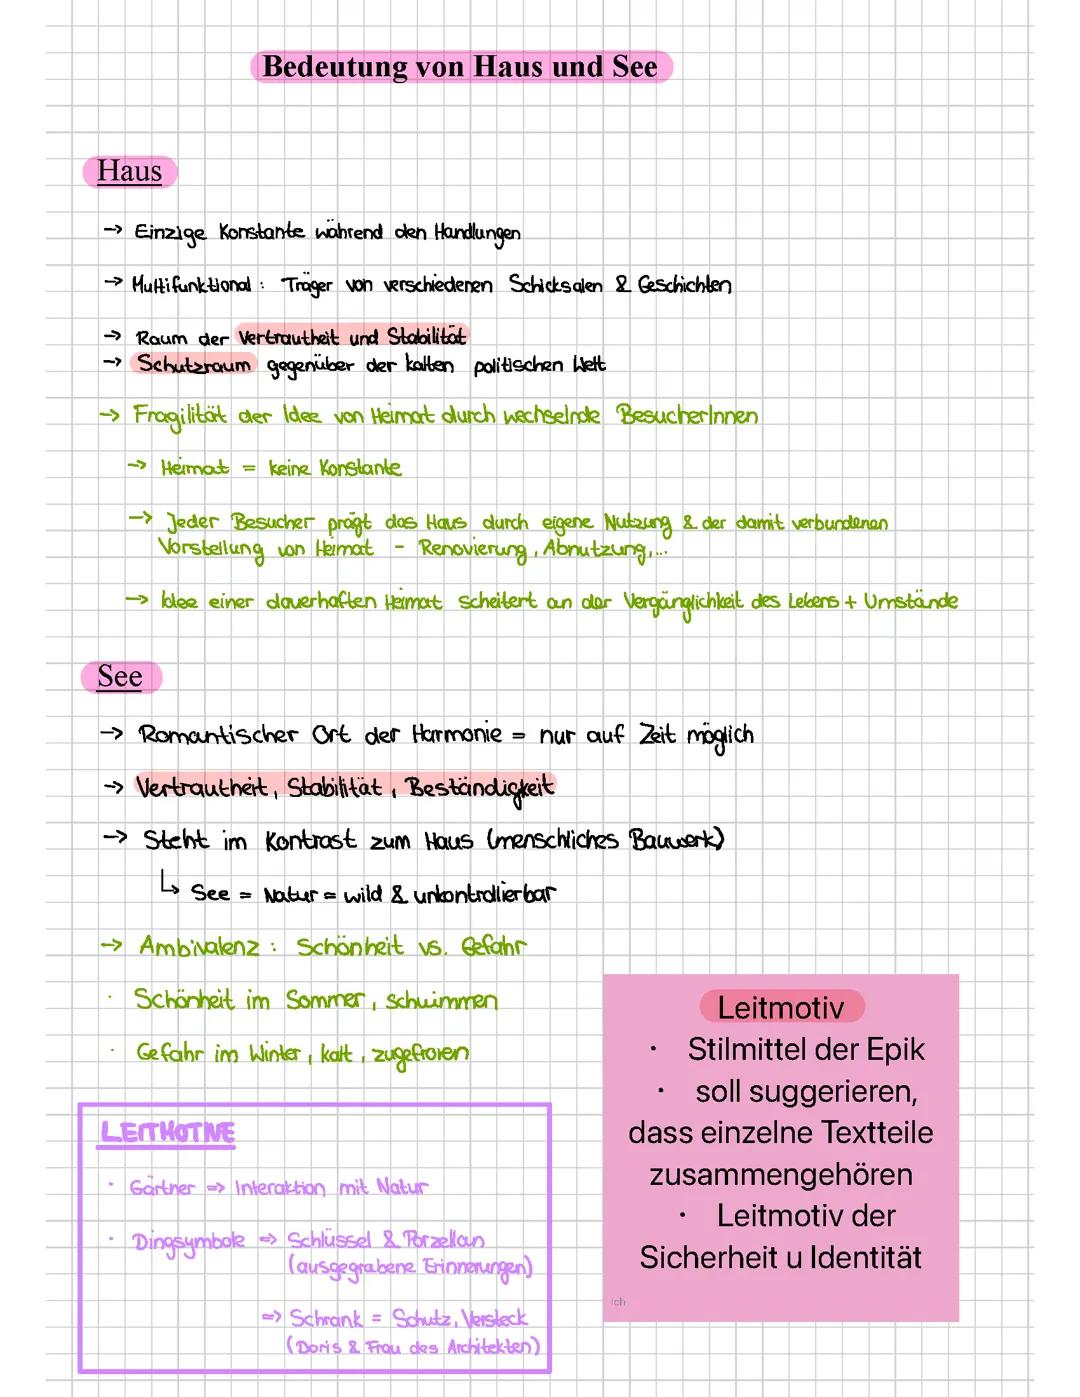 Bedeutung von Haus und See
Haus
→ Einzige Konstante während den Handlungen
→ Multifunktional : Träger von verschiedenen Schicksalen & Geschichten
→ Raum der Vertrautheit und Stabilität
→ Schutzraum gegenüber der kalten politischen Welt
→ Fragilität der Idee von Heimat durch wechselnde BesucherInnen
→ Heimat = keine Konstante
→ Jeder Besucher prägt das Haus durch eigene Nutzung & der damit verbundenen
Vorstellung von Heimat - Renovierung, Abnutzung,...
→ Idee einer dauerhaften Heimat scheitert an der Vergänglichkeit des Lebens + Umstände
See
→ Romantischer Ort der Harmonie = nur auf Zeit möglich
→ Vertrautheit, Stabilität, Beständigkeit
→ Steht im Kontrast zum Haus (menschliches Bauwerk)
↳ See = Natur = wild & unkontrollierbar
→ Ambivalenz : Schönheit vs. Gefahr
· Schönheit im Sommer, schwimmen
· Gefahr im Winter, kalt, zugefroren
LEITMOTIVE
· Gärtner => Interaktion mit Natur
· Dingsymbole => Schlüssel & Porzellan
(ausgegrabene Erinnerungen)
=> Schrank = Schutz, Versteck
(Doris & Frau des Architekten)
Leitmotiv
· Stilmittel der Epik
· soll suggerieren,
dass einzelne Textteile
zusammengehören
· Leitmotiv der
Sicherheit u Identität
ich